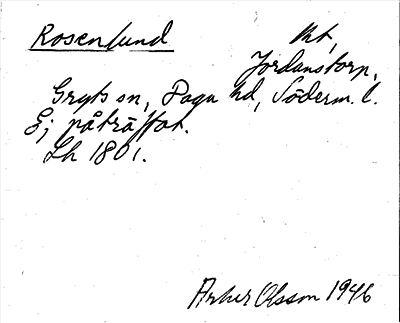 Rosenlund
Kt,
Jordanstorp,
Gryts sn, Daga hd, Söderm. l.
Ej påträffat.
Lh 1801.
Arher Olsson 1946